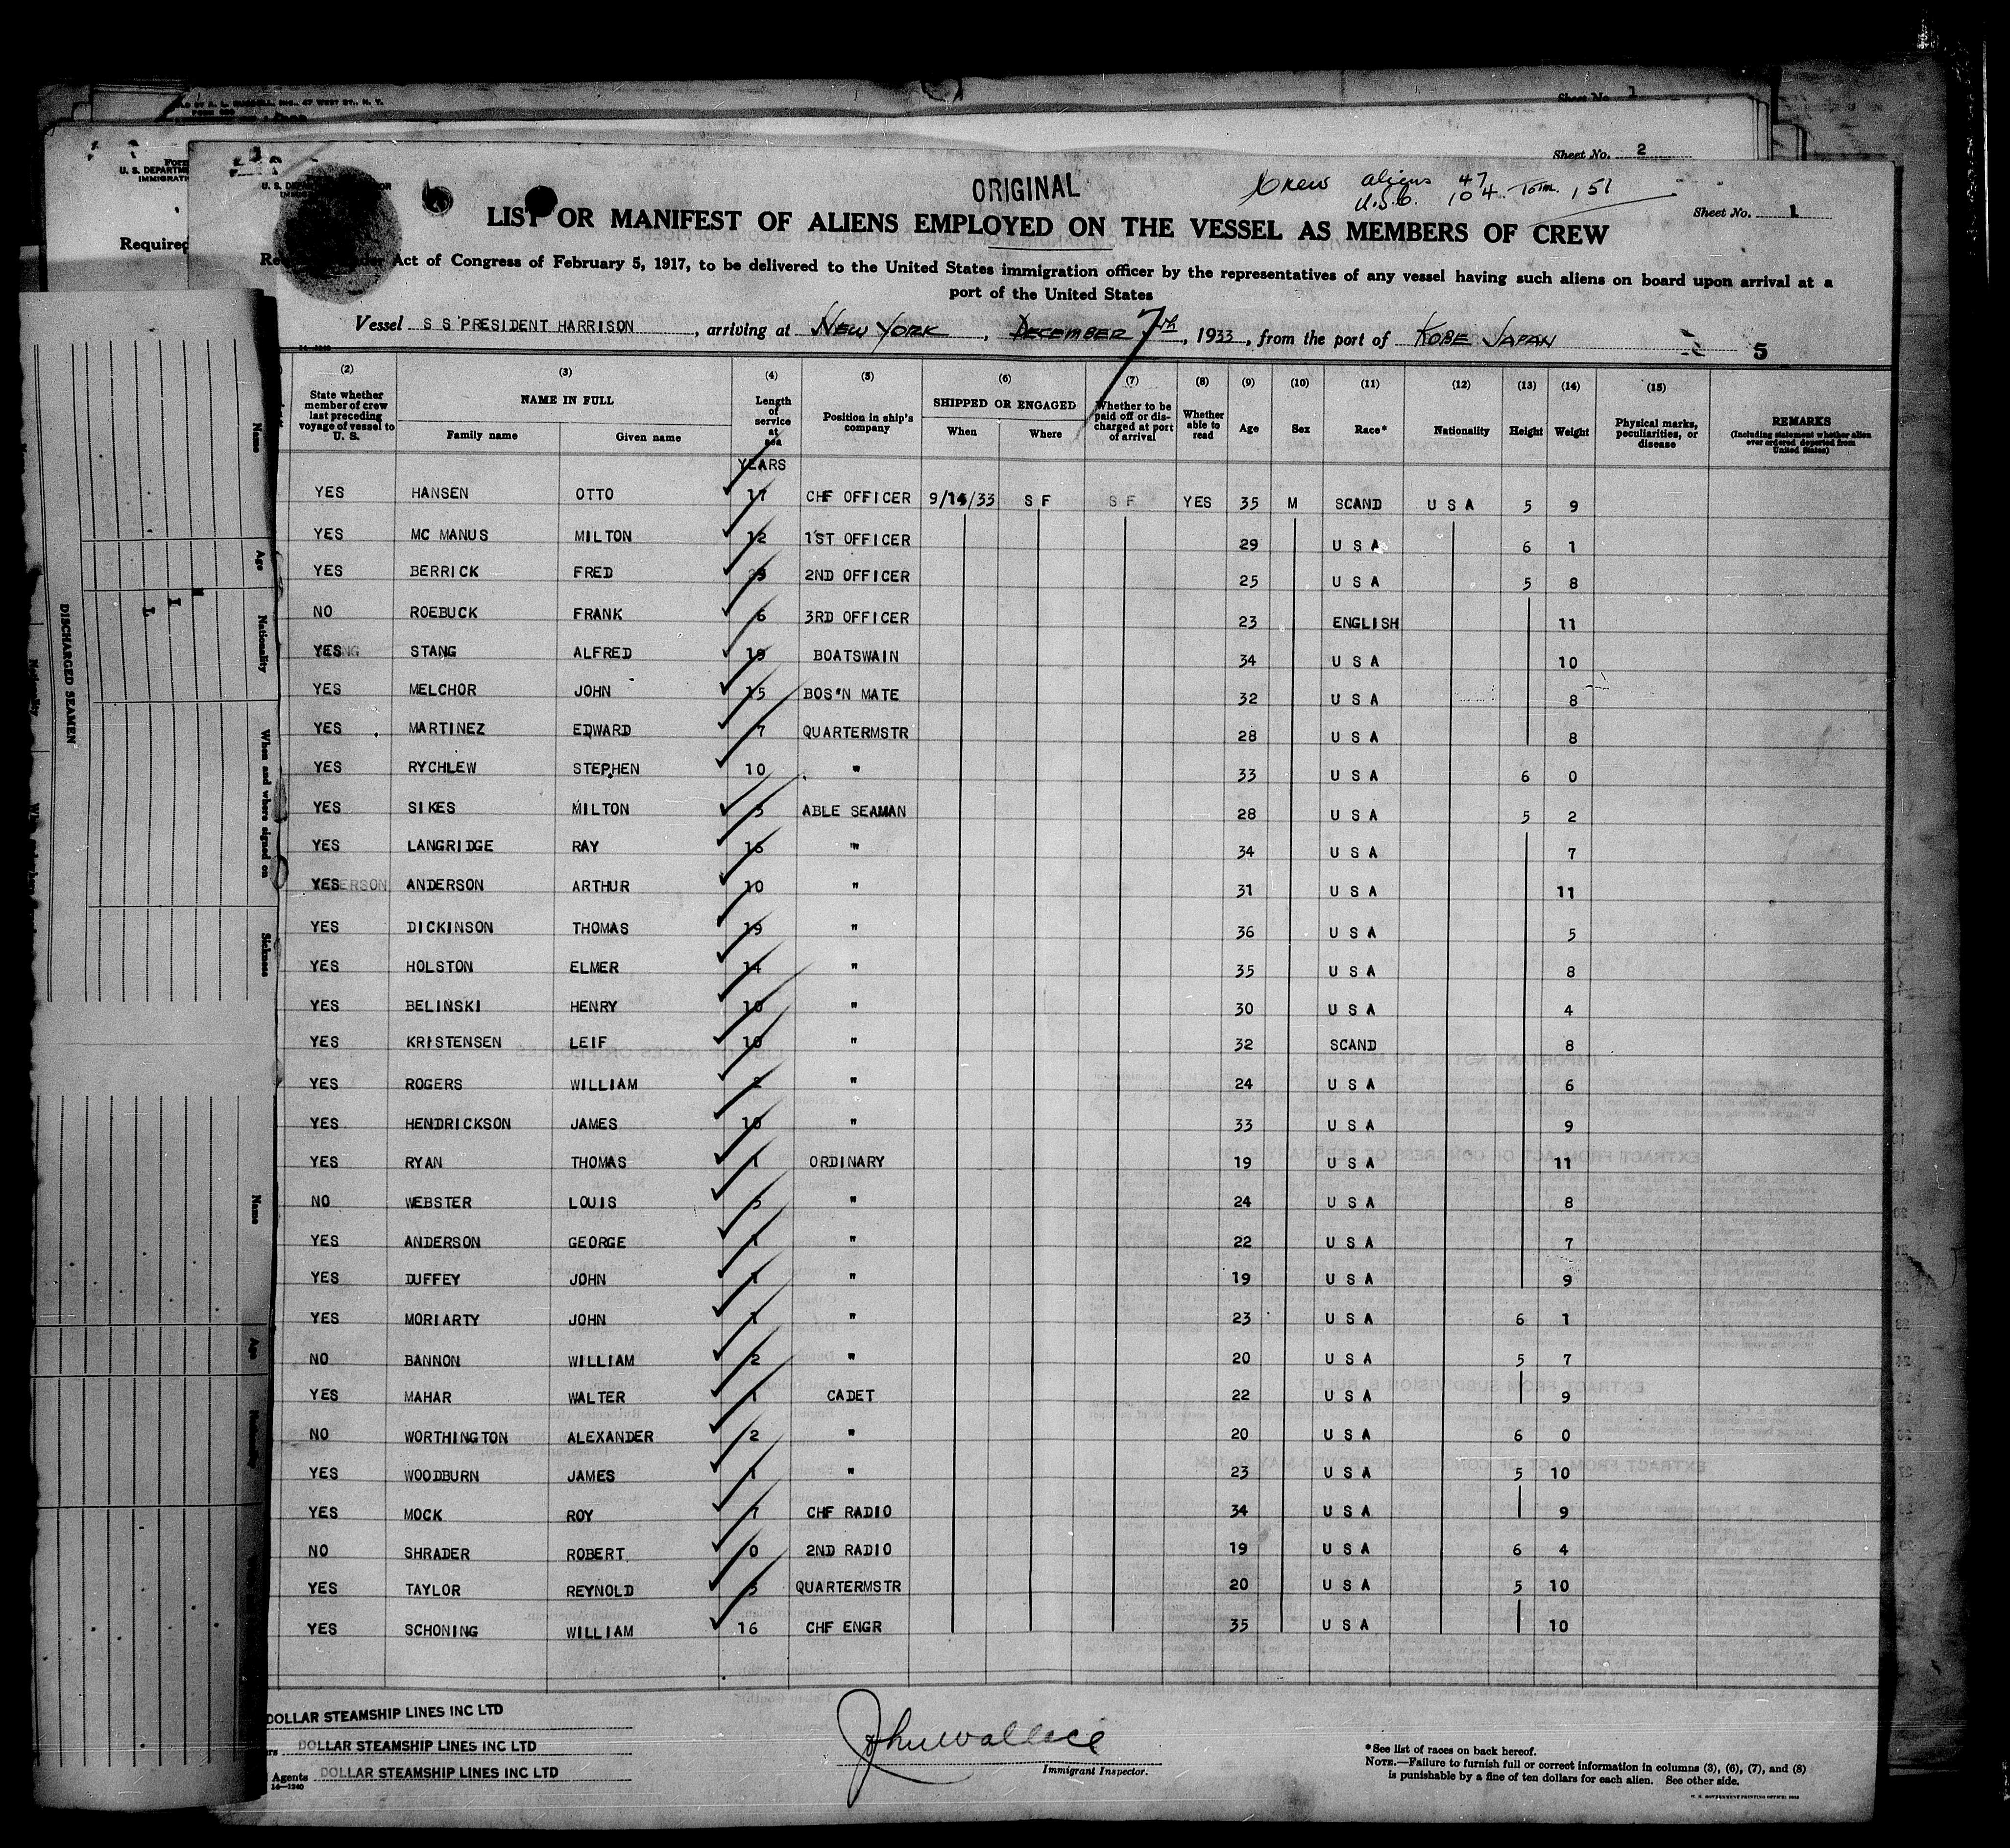 Sheet No. 1
Sheet No. 2
ORIGINAL
Crew aliens 47
U.S.C. 104 Total 151
Sheet No. 1
LIST OR MANIFEST OF ALIENS EMPLOYED ON THE VESSEL AS MEMBERS OF CREW
Act of Congress of February 5, 1917, to be delivered to the United States immigration officer by the representatives of any vessel having such aliens on board upon arrival at a
port of the United States
Vessel S S PRESIDENT HARRISON, arriving at NEW YORK, DECEMBER 7th, 1933, from the port of KOBE JAPAN
5
(2) (3) (4) (5) (6) (7) (8) (9) (10) (11) (12) (13) (14) (15)
State whether member of crew last preceding voyage of vessel to U. S. NAME IN FULL Family name Given name Length of service at sea Position in ship's company SHIPPED OR ENGAGED When Where Whether to be paid off or discharged at port of arrival Whether able to read Age Sex Race* Nationality Height Weight Physical marks, peculiarities, or disease REMARKS (Including statement whether alien ever ordered deported from United States)
YEARS
YES HANSEN OTTO 17 CHF OFFICER 9/14/33 S F S F YES 35 M SCAND U S A 5 9
YES MC MANUS MILTON 12 1ST OFFICER 29 U S A 6 1
YES BERRICK FRED 2ND OFFICER 25 U S A 5 8
NO ROEBUCK FRANK 6 3RD OFFICER 23 ENGLISH 11
YES STANG ALFRED 19 BOATSWAIN 34 U S A 10
YES MELCHOR JOHN 15 BOS'N MATE 32 U S A 8
YES MARTINEZ EDWARD 7 QUARTERMSTR 28 U S A 8
YES RYCHLEW STEPHEN 10 " 33 U S A 6 0
YES SIKES MILTON 5 ABLE SEAMAN 28 U S A 5 2
YES LANGRIDGE RAY 16 " 34 U S A 7
YES ANDERSON ARTHUR 10 " 31 U S A 11
YES DICKINSON THOMAS 19 " 36 U S A 5
YES HOLSTON ELMER 14 " 35 U S A 8
YES BELINSKI HENRY 10 " 30 U S A 4
YES KRISTENSEN LEIF 10 " 32 SCAND 8
YES ROGERS WILLIAM 2 " 24 U S A 6
YES HENDRICKSON JAMES 10 " 33 U S A 9
YES RYAN THOMAS 1 ORDINARY 19 U S A 11
NO WEBSTER LOUIS 5 " 24 U S A 8
YES ANDERSON GEORGE 1 " 22 U S A 7
YES DUFFEY JOHN 1 " 19 U S A 9
YES MORIARTY JOHN 1 " 23 U S A 6 1
NO BANNON WILLIAM 2 " 20 U S A 5 7
YES MAHAR WALTER 1 CADET 22 U S A 9
NO WORTHINGTON ALEXANDER 2 " 20 U S A 6 0
YES WOODBURN JAMES 1 " 23 U S A 5 10
YES MOCK ROY 7 CHF RADIO 34 U S A 9
NO SHRADER ROBERT 0 2ND RADIO 19 U S A 6 4
YES TAYLOR REYNOLD 5 QUARTERMSTR 20 U S A 5 10
YES SCHONING WILLIAM 16 CHF ENGR 35 U S A 10
DOLLAR STEAMSHIP LINES INC LTD
DOLLAR STEAMSHIP LINES INC LTD
Agents DOLLAR STEAMSHIP LINES INC LTD
14—1240
John Wallace
Immigrant Inspector.
*See list of races on back hereof.
NOTE.—Failure to furnish full or correct information in columns (3), (6), (7), and (8)
is punishable by a fine of ten dollars for each alien. See other side.
Required
DISCHARGED SEAMEN
Name
Age
Nationality
When and where signed on
Sickness
Name
Age